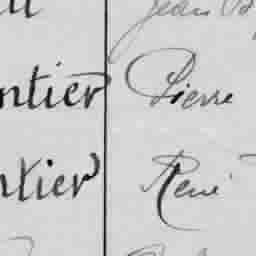 Jean
ntier Pierre
ntier René